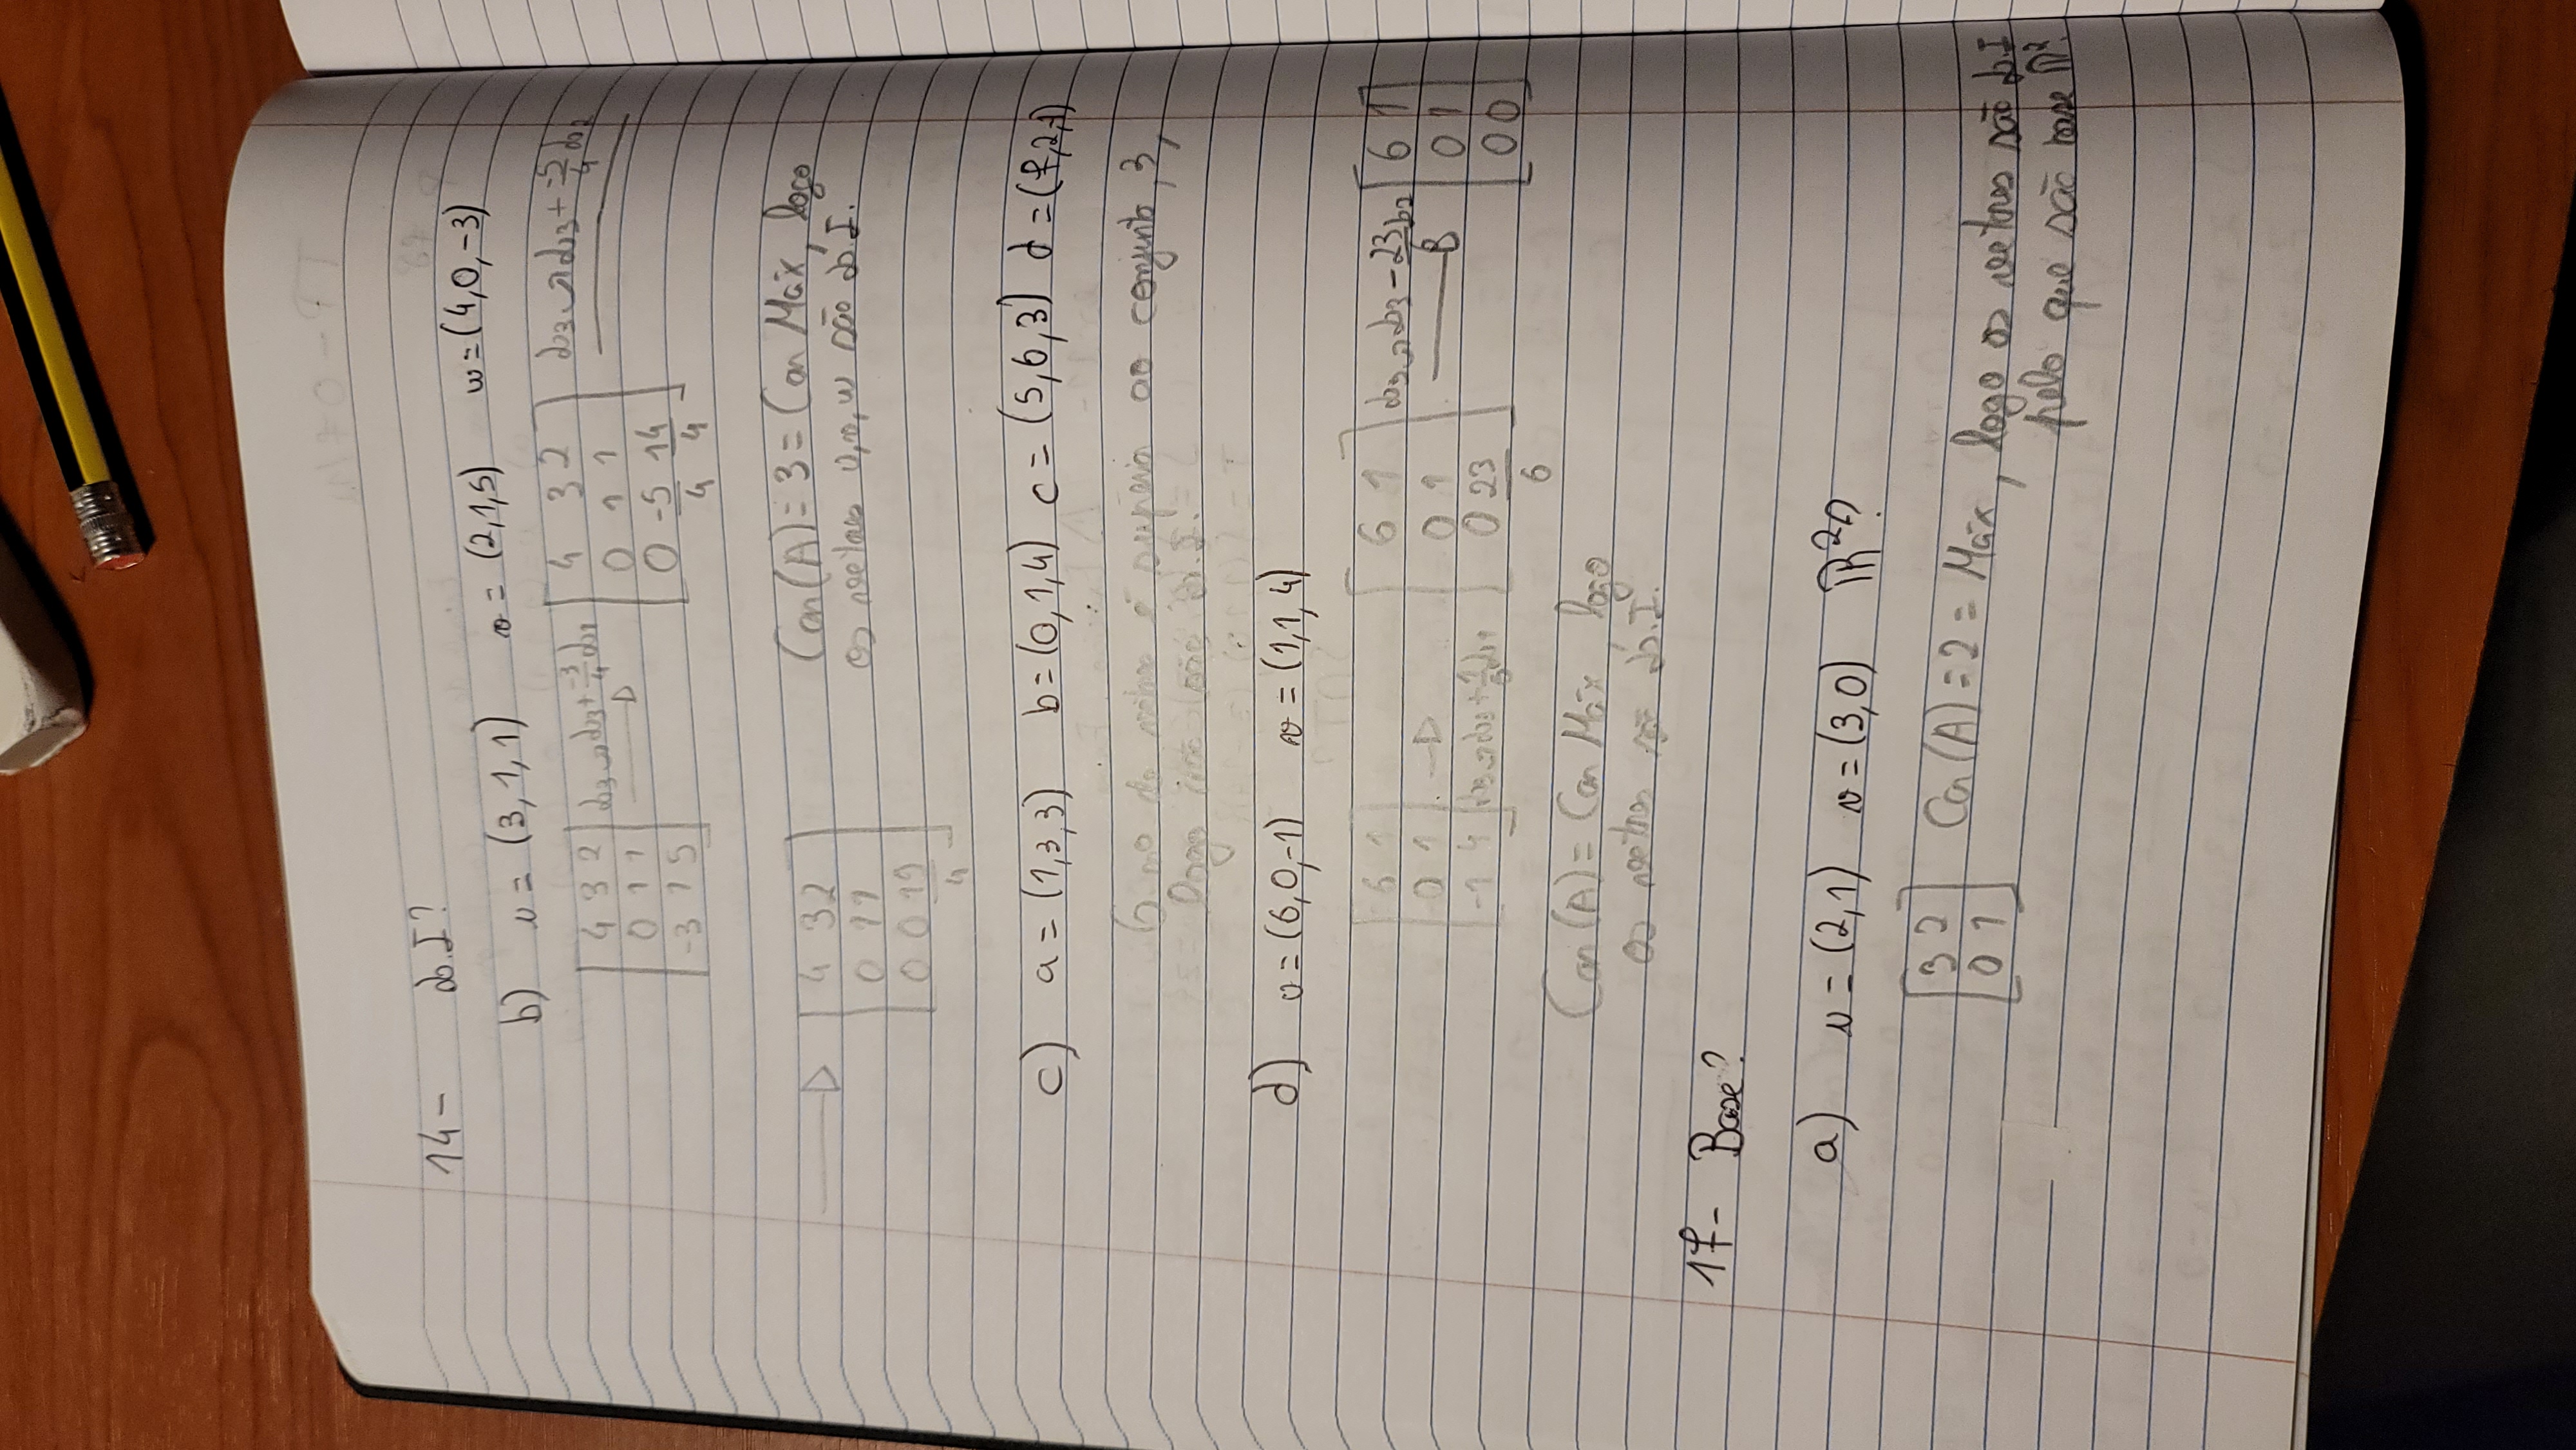 14- L.I?
b) u = (3,1,1) v = (2,1,5) w = (4,0,-3)
[4 3 2 L3→L3+-3/4L1 [4 3 2 L3→L3+-5/4L2
0 1 1 0 1 1
-3 1 5] 0 -5/4 14/4]
[4 3 2 Car(A) = 3 = Car Máx, logo
0 1 1 os vetores u,v,w são L.I.
0 0 19/4]
c) a = (1,3,3) b = (0,1,4) c = (5,6,3) d = (7,2,1)
O nº de vetores é superior ao conjunto, 3,
logo não são L.I.
d) u = (6,0,-1) v = (1,1,4)
[6 1 [6 1 L3→L3-23/6L2 [6 1
0 1 0 1 0 1
-1 4] L3→L3+1/6L1 0 23/6] 0 0]
Car(A) = Car Máx, logo
os vetores são L.I.
17- Base?
a) u = (2,1) v = (3,0) ℝ²?
[3 2 Car(A) = 2 = Máx, logo os vetores são L.I
0 1] pelo que são base ℝ².